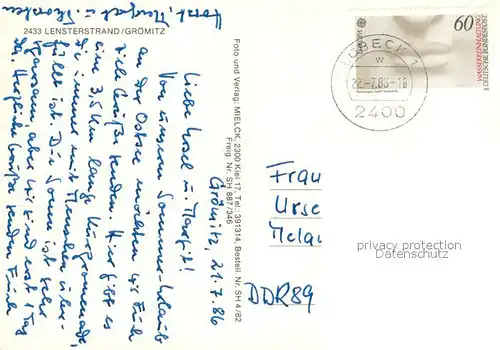 2433 LENSTERSTRAND/GRÖMITZ
Grömitz, 21.7.86
Liebe Ursel u. Margit!
Von unserem Sommer-Urlaub
an der Ostsee möchten wir Euch
viele Grüße senden. Hier gibt es
eine 3,5 km lange Kurpromenade,
die immer mit Menschen über-
füllt ist. Die Sonne ist sehr
sparsam, aber wir sind erst 1 Tag
da. Herzliche Grüße senden Euch
Horst, Margret u. Thorsten
Foto und Verlag: MIELCK, 2300 Kiel 17, Tel.: 391314, Bestell. Nr. SH 4/82
Freig. Nr. SH 887/346
60
DEUTSCHE BUNDESPOST
LÜBECK 1
w
22.-7.86-18
2400
Frau
Urse
Melau
DDR 89
privacy protection
Datenschutz